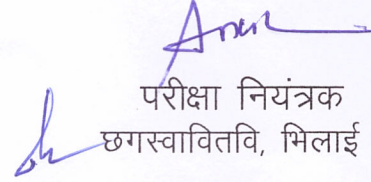 परीक्षा नियंत्रक
छगस्वावितवि, भिलाई